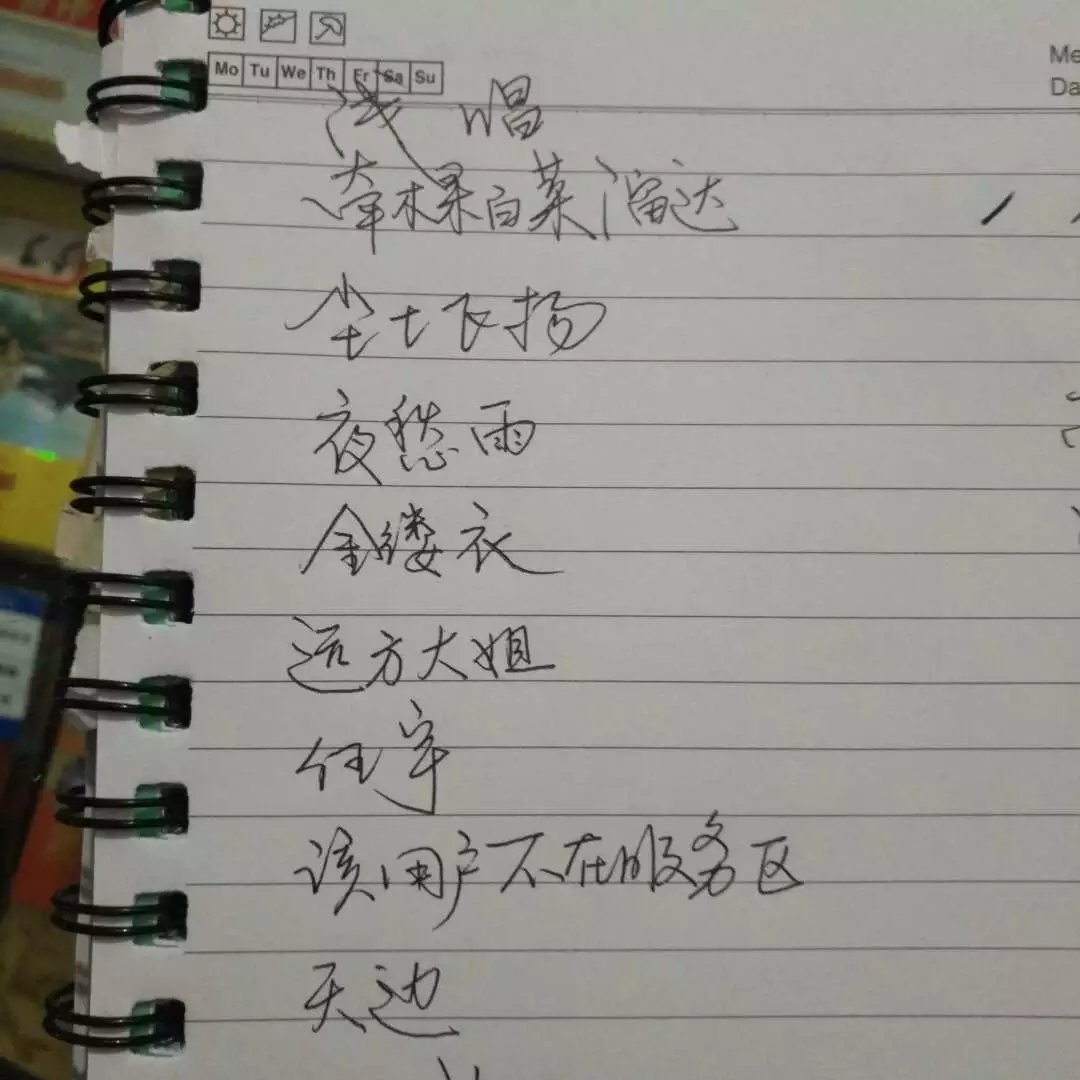 Mo Tu We Th Fr Sa Su
Me
Da
浅唱
牵棵白菜溜达
尘土飞扬
夜愁雨
金缕衣
远方大姐
任宇
该用户不在服务区
天边